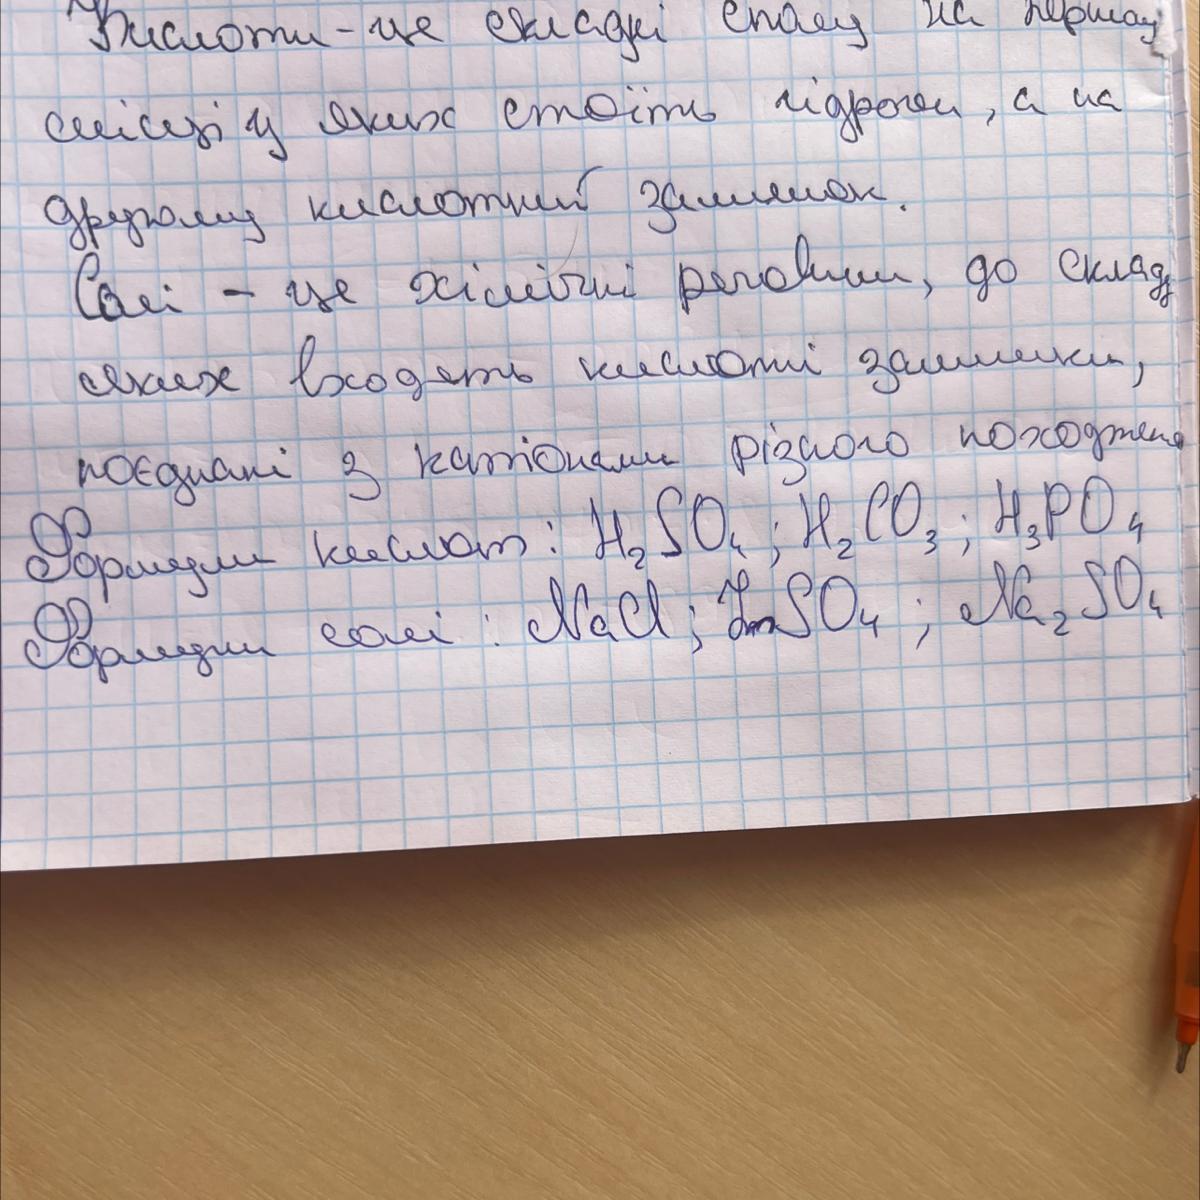 Кислоти - це складні спону на першому
місці у яких стоїть гідроген, а на
другому кислотний залишок.
Солі - це хімічні речовини, до складу
яких входять кислотні залишки,
поєднані з катіонами різного походження
Формули кислот: H₂SO₄; H₂CO₃; H₃PO₄
Формули солі: NaCl; ZnSO₄; Na₂SO₄